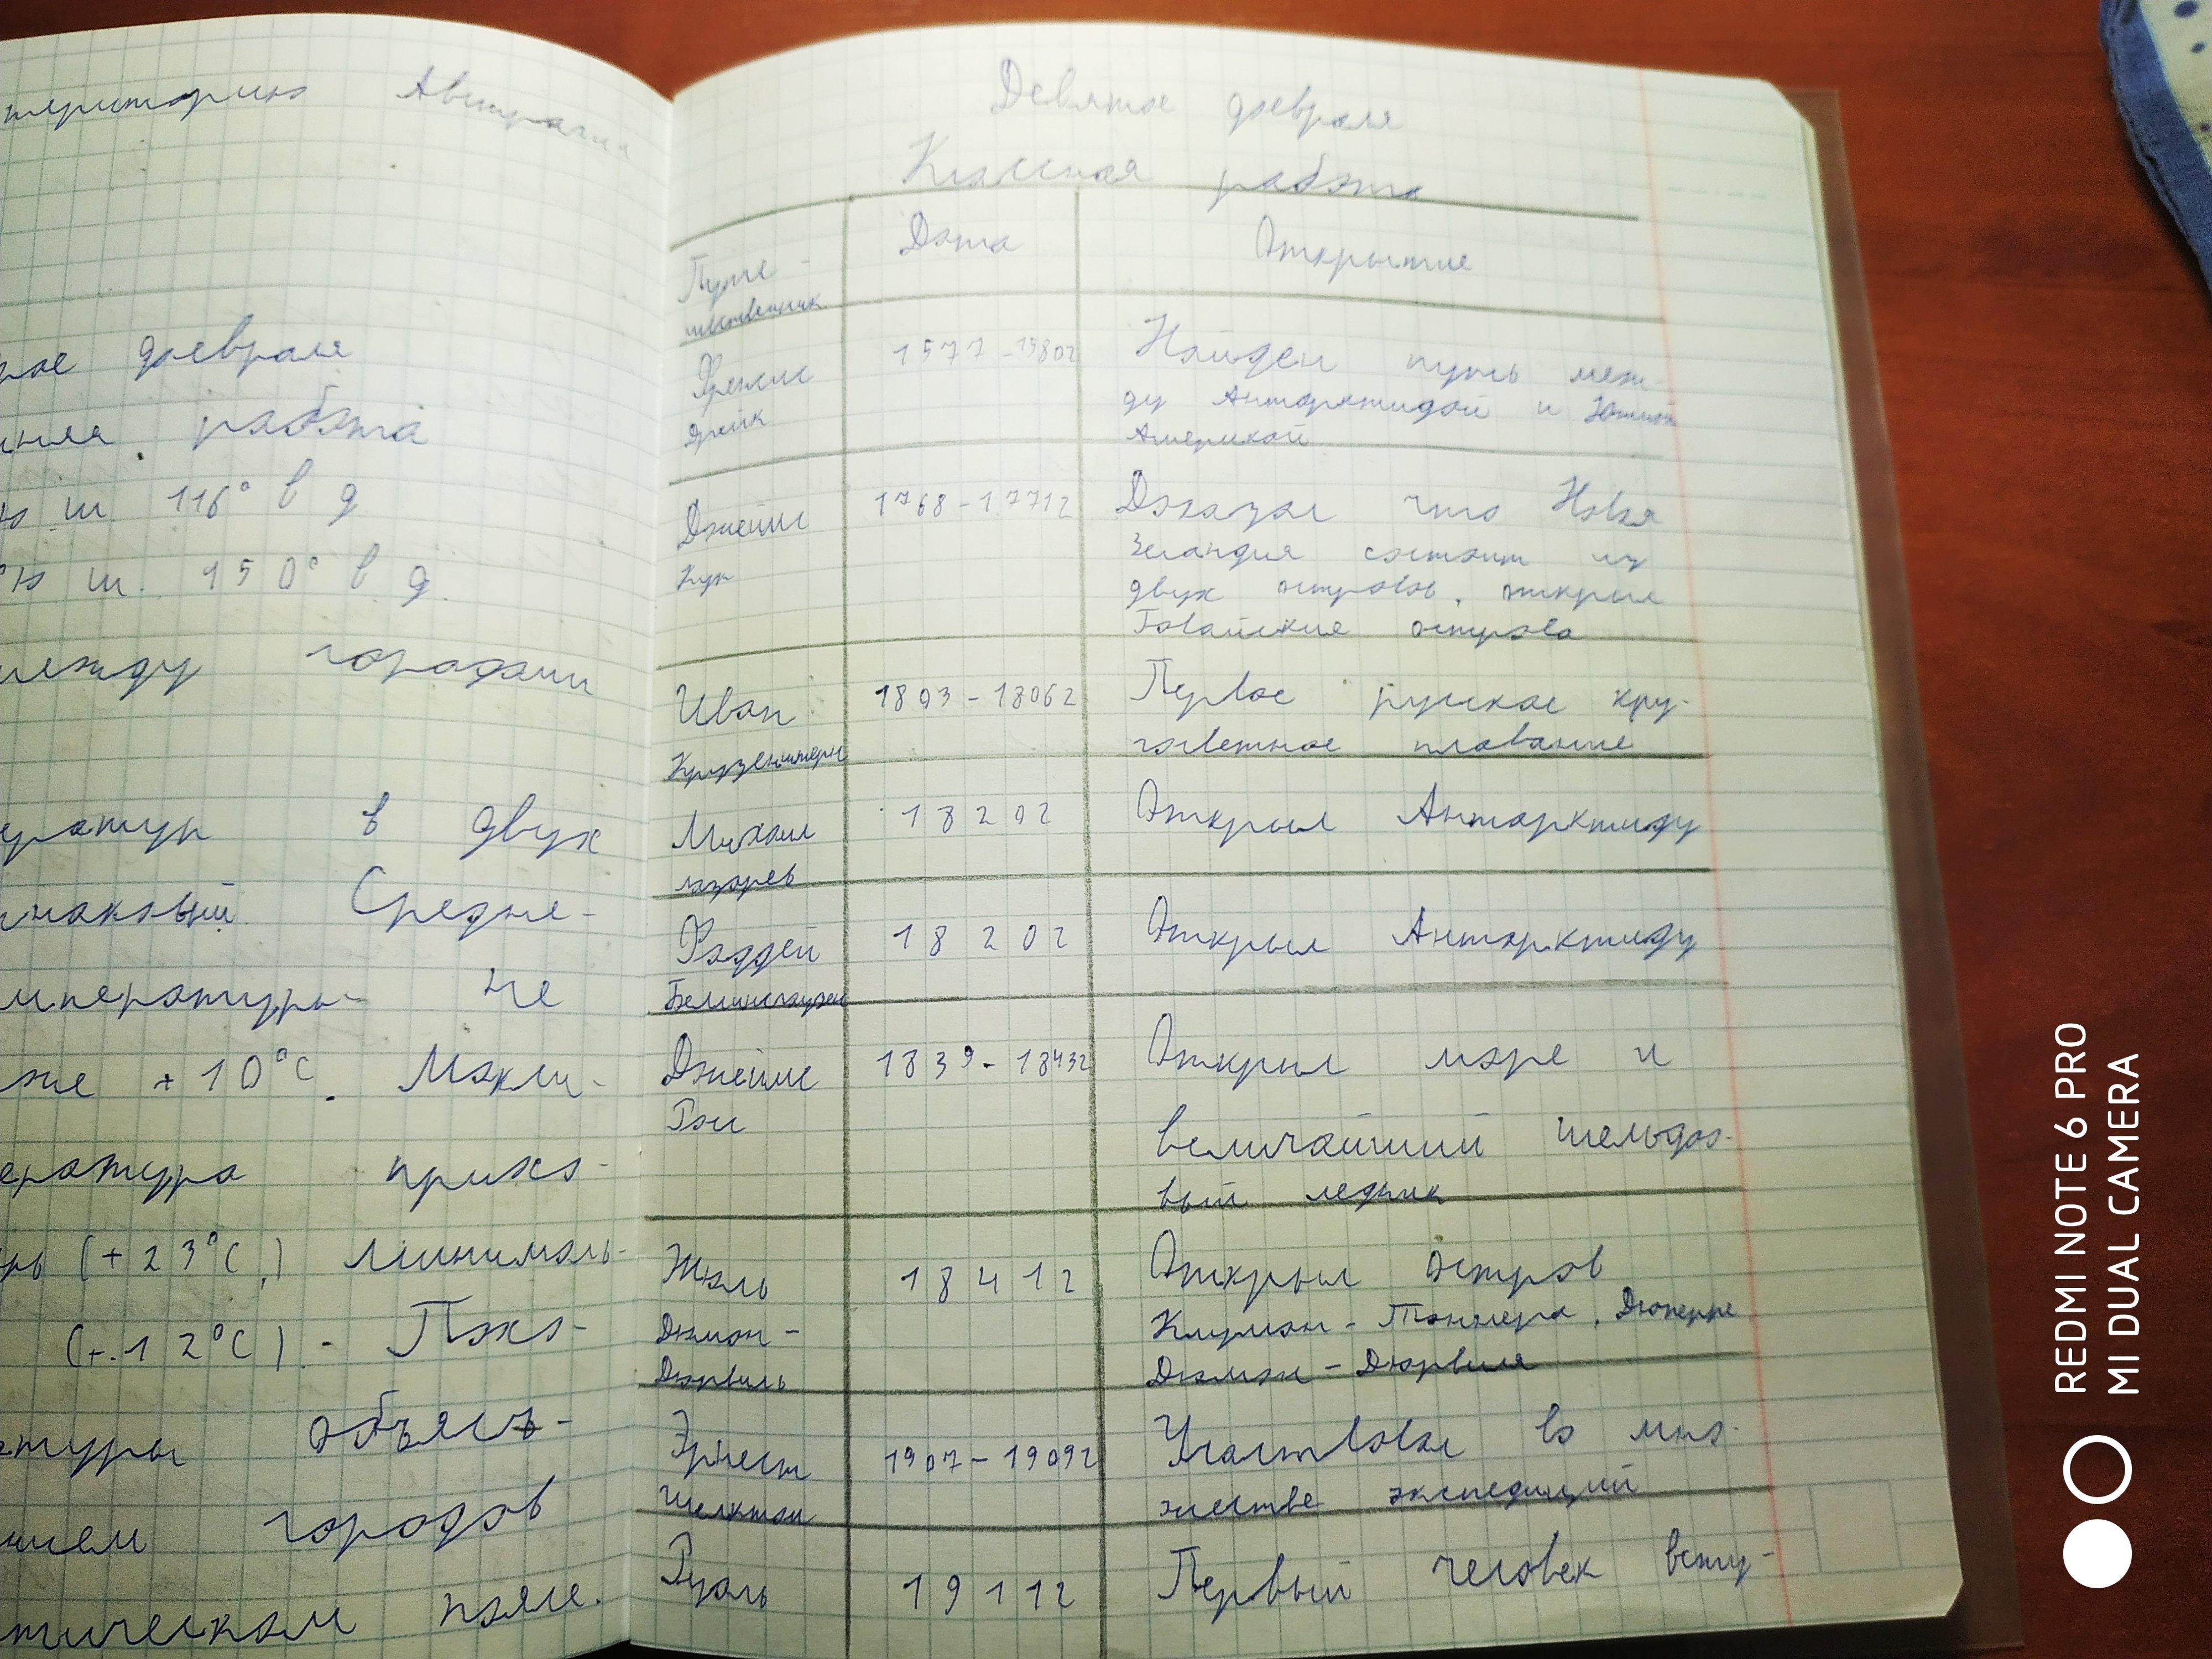 территорию Австралия
рое февраля
шняя работа
ю ш. 116° в д
°ю ш. 150° в д.
между городами
ератур в двух
инаковый. Средне-
мпературы- не
же +10°C. Макси-
ература прихо-
рь (+23°C,) минималь-
(+.12°C). - Похо-
атуры объясъ-
нием городов
тическом поясе.
Девятое февраля
Классная работа
Путе-
шественник
Дата
Открытие
Френсис
Дрейк
1577-1580г
Найден путь меж-
ду Антарктидой и Южной
Америкой
Джеймс
Кук
1768-1771г
Доказал что Новая
Зеландия состоит из
двух островов, открыл
Гавайские острова
Иван
Крузенштерн
1803-1806г
Первое руское кру-
госветное плавание
Михаил
лазарев
1820г
Открыл Антарктиду
Фаддей
Белинсгаузен
1820г
Открыл Антарктиду
Джеймс
Росс
1839-1843г
Открыл море и
величайший шельфо-
вый ледник
Жюль
Дюмон-
Дюрвиль
1841г
Открыл остров
Клуман-Тоннера, Дюперре
Дюмон-Дюрвиля
Эрнест
Шеклтон
1907-1909г
Участвовал во мно-
жестве экспедиций
Руаль
1911г
Первый человек всту-
REDMI NOTE 6 PRO
MI DUAL CAMERA